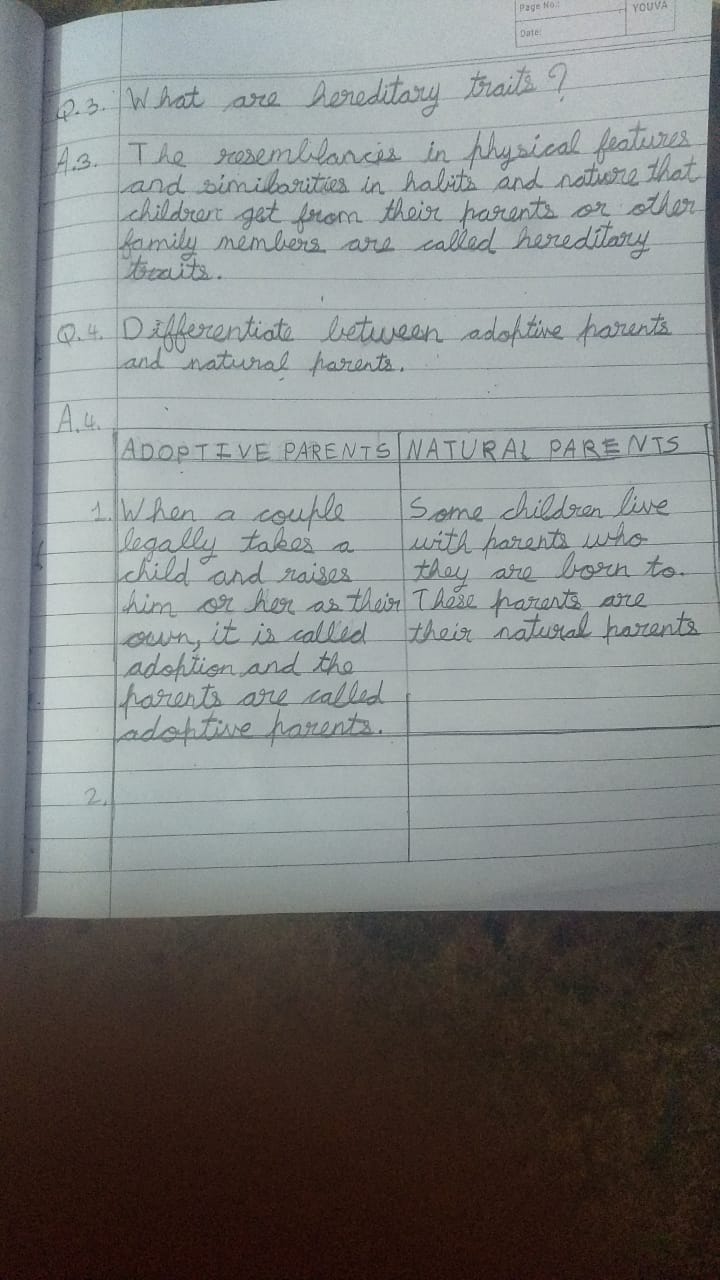 Page No.:
YOUVA
Date:
Q.3. What are hereditary traits?
A.3. The resemblances in physical features
and similarities in habits and nature that
children get from their parents or other
family members are called hereditary
traits.
Q.4. Differentiate between adoptive parents
and natural parents.
A.4.
ADOPTIVE PARENTS NATURAL PARENTS
1. When a couple Some children live
legally takes a with parents who
child and raises they are born to.
him or her as their These parents are
own, it is called their natural parents
adoption and the
parents are called
adoptive parents.
2.